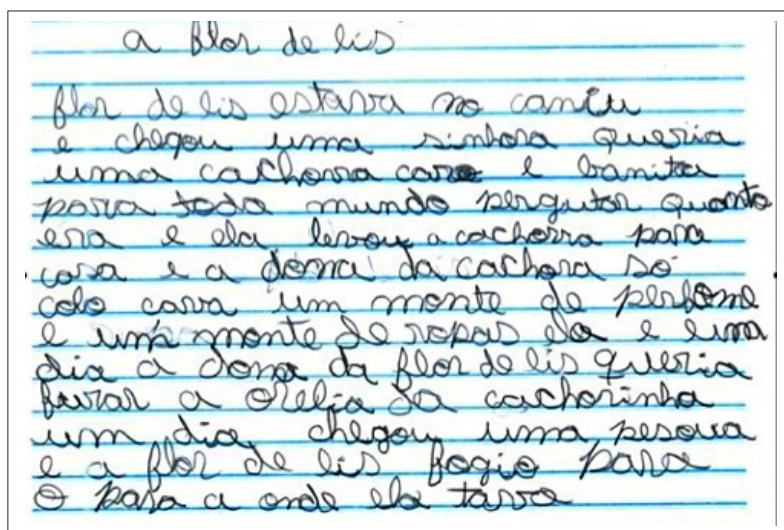 a flor de lis
flor de lis estava no caniu
e chegou uma sinhora queria
uma cachorra caro e banita
para toda mundo pergutar quanto
era e ela levou a cachorra para
casa e a dona da cachora só
colo cava um monte de perfome
e um monte de ropas ela e uma
dia a dona da flor de lis queria
furar a orelia da cachorinha
um dia chegou uma pesoua
e a flor de lis fogio para
o para a onde ela tava